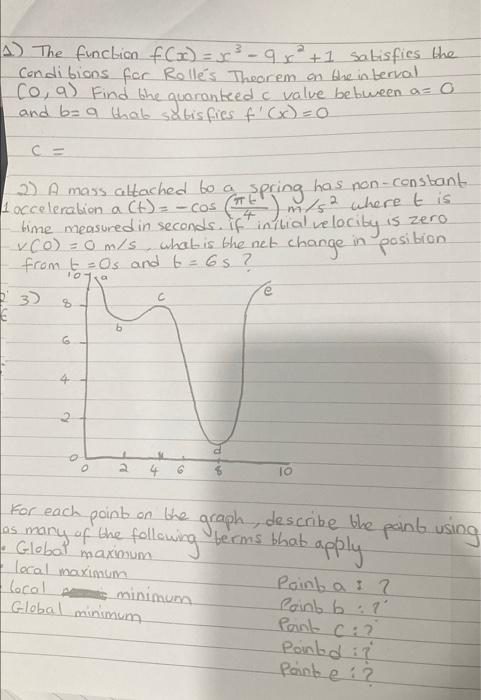 1) The function f(x) = x³ - 9x² + 1 satisfies the
conditions for Rolle's Theorem on the interval
(0, 9) Find the guaranteed c value between a = 0
and b = 9 that satisfies f'(x) = 0
c =
2) A mass attached to a spring has non-constant
acceleration a(t) = -cos (πt/4) m/s² where t is
time measured in seconds. if initial velocity is zero
v(0) = 0 m/s, what is the net change in position
from t = 0s and t = 6s ?
3)
10 a
8 c e
b
6
4
2
d
0
0 2 4 6 8 10
For each point on the graph, describe the point using
as many of the following terms that apply
• Global maximum
• local maximum
• local minimum
Global minimum
Point a : ?
Point b : ?
Point c : ?
Point d : ?
Point e : ?